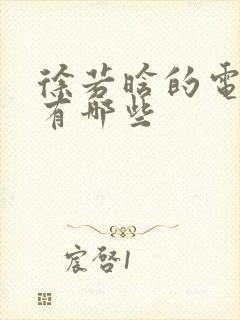 徐若晗的電
有哪些
宸啓1